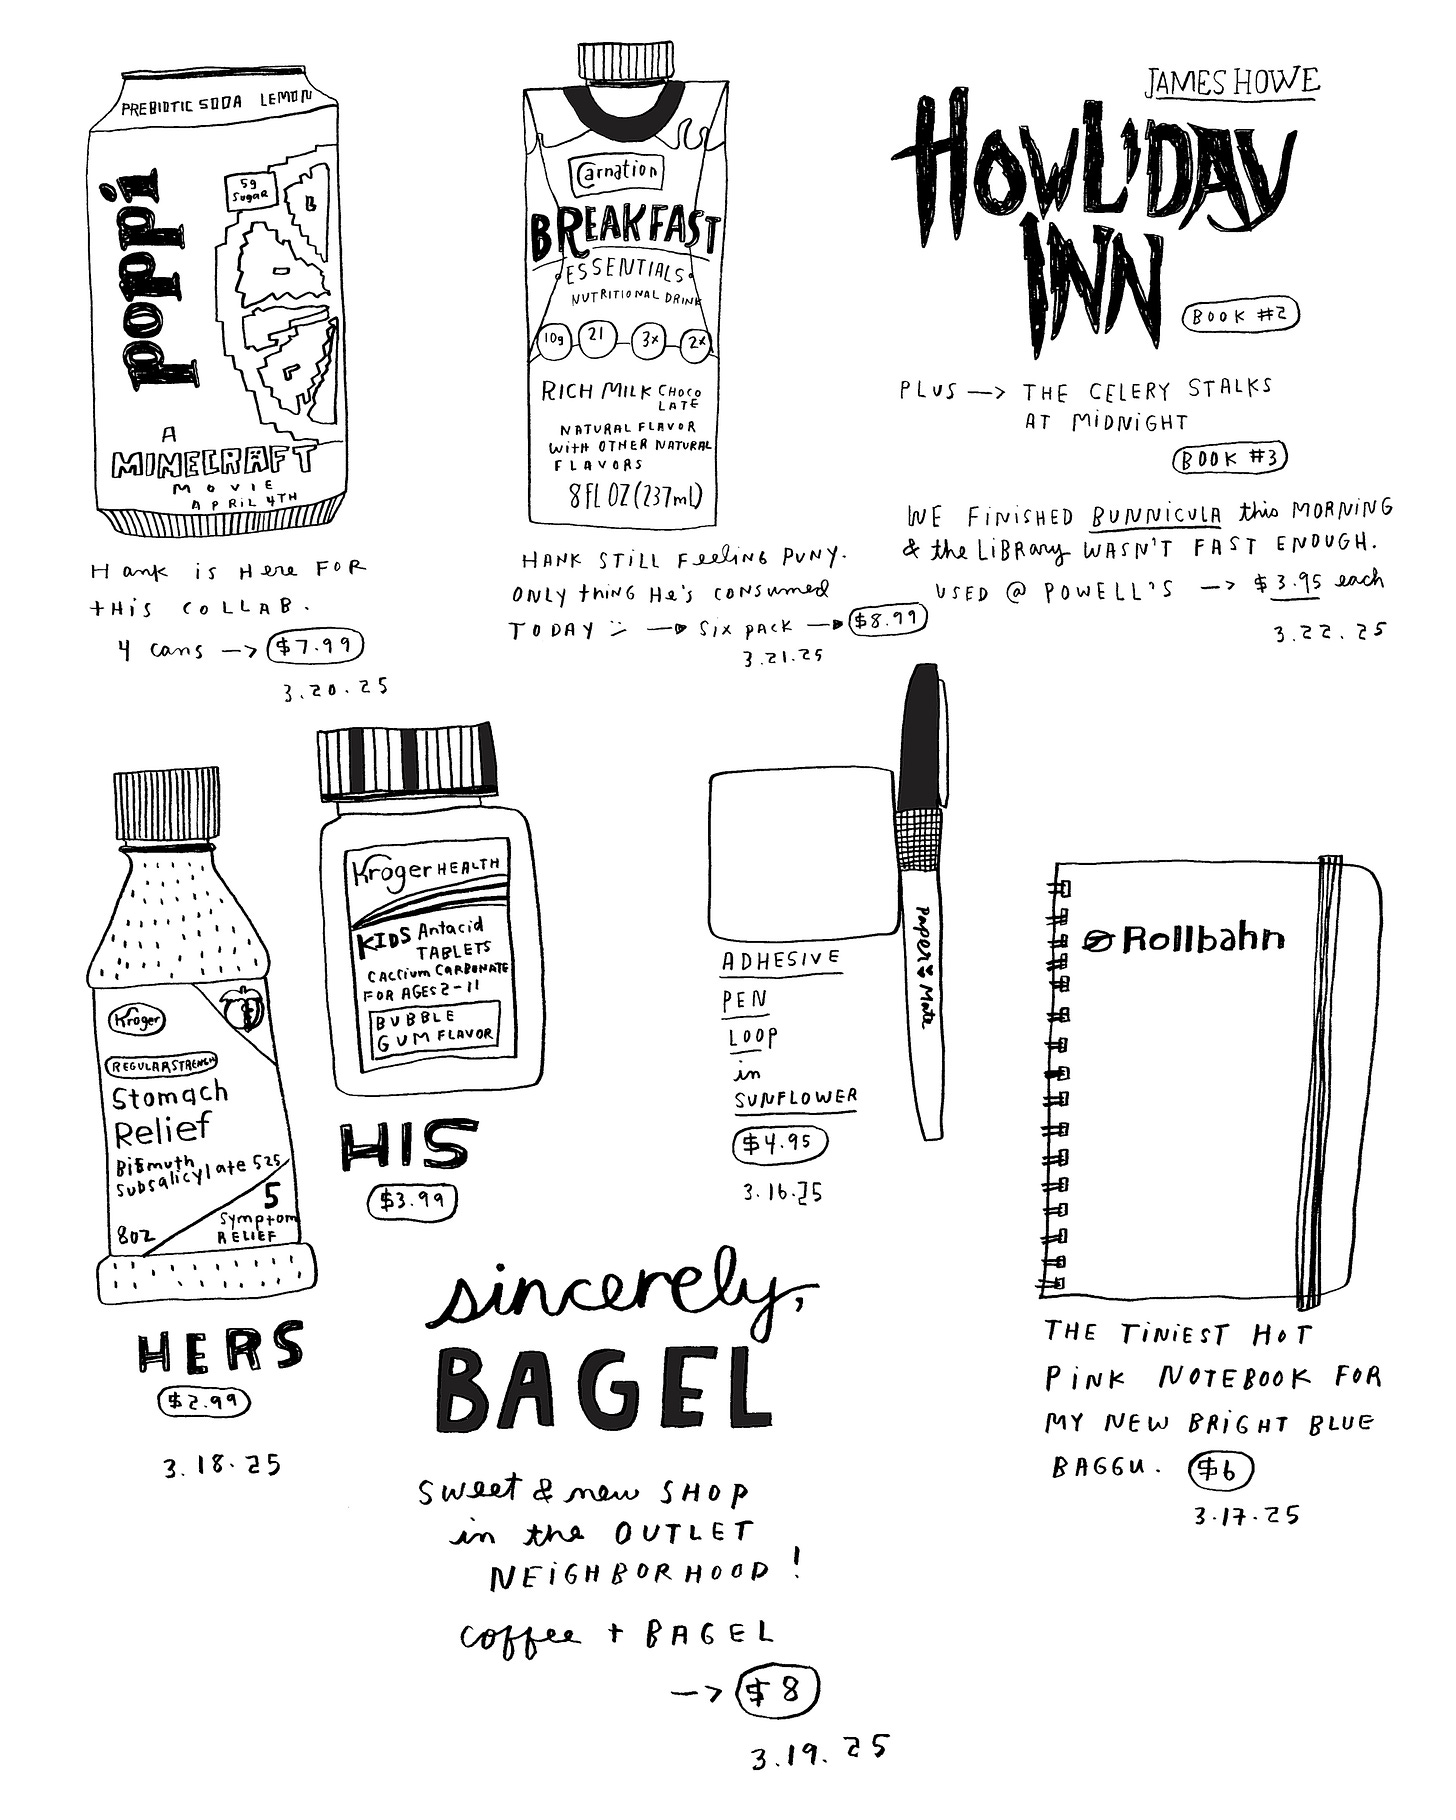 PREBIOTIC SODA LEMON
poppi
5g
SUGAR
A
MINECRAFT
MOVIE
APRIL 4TH
Hank is Here FOR
tHis COLLAB.
4 cans —> $7.99
3.20.25
Carnation
BREAKFAST
ESSENTIALS
NUTRITIONAL DRINK
10g 21 3x 2x
RICH MILK CHOCO
LATE
NATURAL FLAVOR
WITH OTHER NATURAL
FLAVORS
8 FL OZ (237mL)
HANK STILL Feeling PUNY.
ONLY tHiNG He's CONSUMED
TODAY :( —> Six PACK —> $8.99
3.21.25
JAMES HOWE
HOWL'DAY
INN
BOOK #2
PLUS —> THE CELERY STALKS
AT MiDNiGHT
BOOK #3
WE FiNiSHED BUNNICULA this MORNING
& the LiBRARY WASN'T FAST ENOUGH.
USED @ POWELL'S —> $3.95 each
3.22.25
Kroger
REGULAR STRENGTH
Stomach
Relief
Bismuth
Subsalicylate 525
5
Symptom
RELIEF
8oz
HERS
$2.99
3.18.25
Kroger HEALTH
KIDS Antacid
TABLETS
CALCIUM CARBONATE
FOR AGES 2-11
BUBBLE
GUM FLAVOR
HIS
$3.99
Paper Mate
ADHESIVE
PEN
LOOP
in
SUNFLOWER
$4.95
3.16.25
Rollbahn
THE TiNiEST HOT
PiNK NOTEBOOK FOR
MY NEW BRiGHT BLUE
BAGGU. $6
3.17.25
sincerely,
BAGEL
Sweet & new SHOP
in the OUTLET
NEiGHBORHOOD!
coffee + BAGEL
—> $8
3.19.25